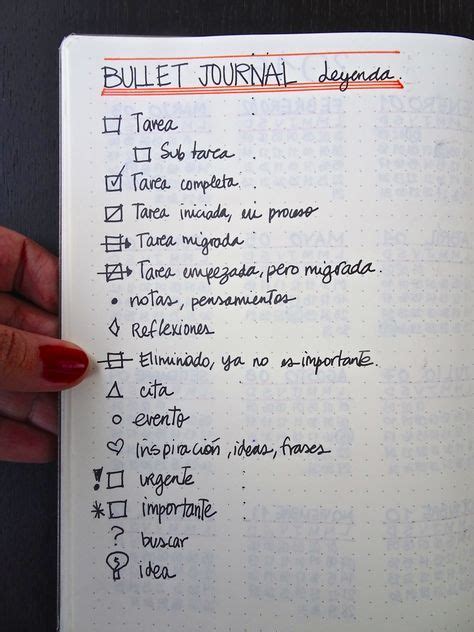 BULLET JOURNAL Leyenda.
Tarea
Sub tarea
Tarea completa.
Tarea iniciada, en proceso
Tarea migrada
Tarea empezada, pero migrada.
notas, pensamientos
Reflexiones
Eliminado, ya no es importante.
cita
evento
inspiración, ideas, frases
! urgente
* importante
? buscar
idea